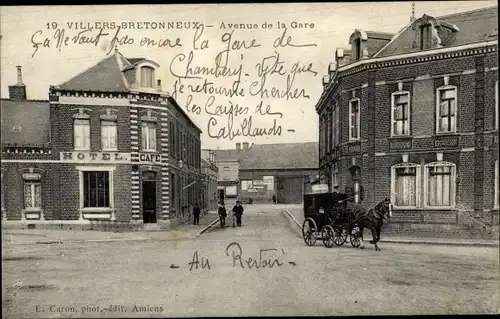 19 VILLERS-BRETONNEUX — Avenue de la Gare
ça Ne vaut pas encore la gare de
Chambéry. Vite que
je retourne chercher
les caisses de
Cabillauds. —
HOTEL. CAFÉ
- Au Revoir -
L. Caron, phot.-édit. Amiens